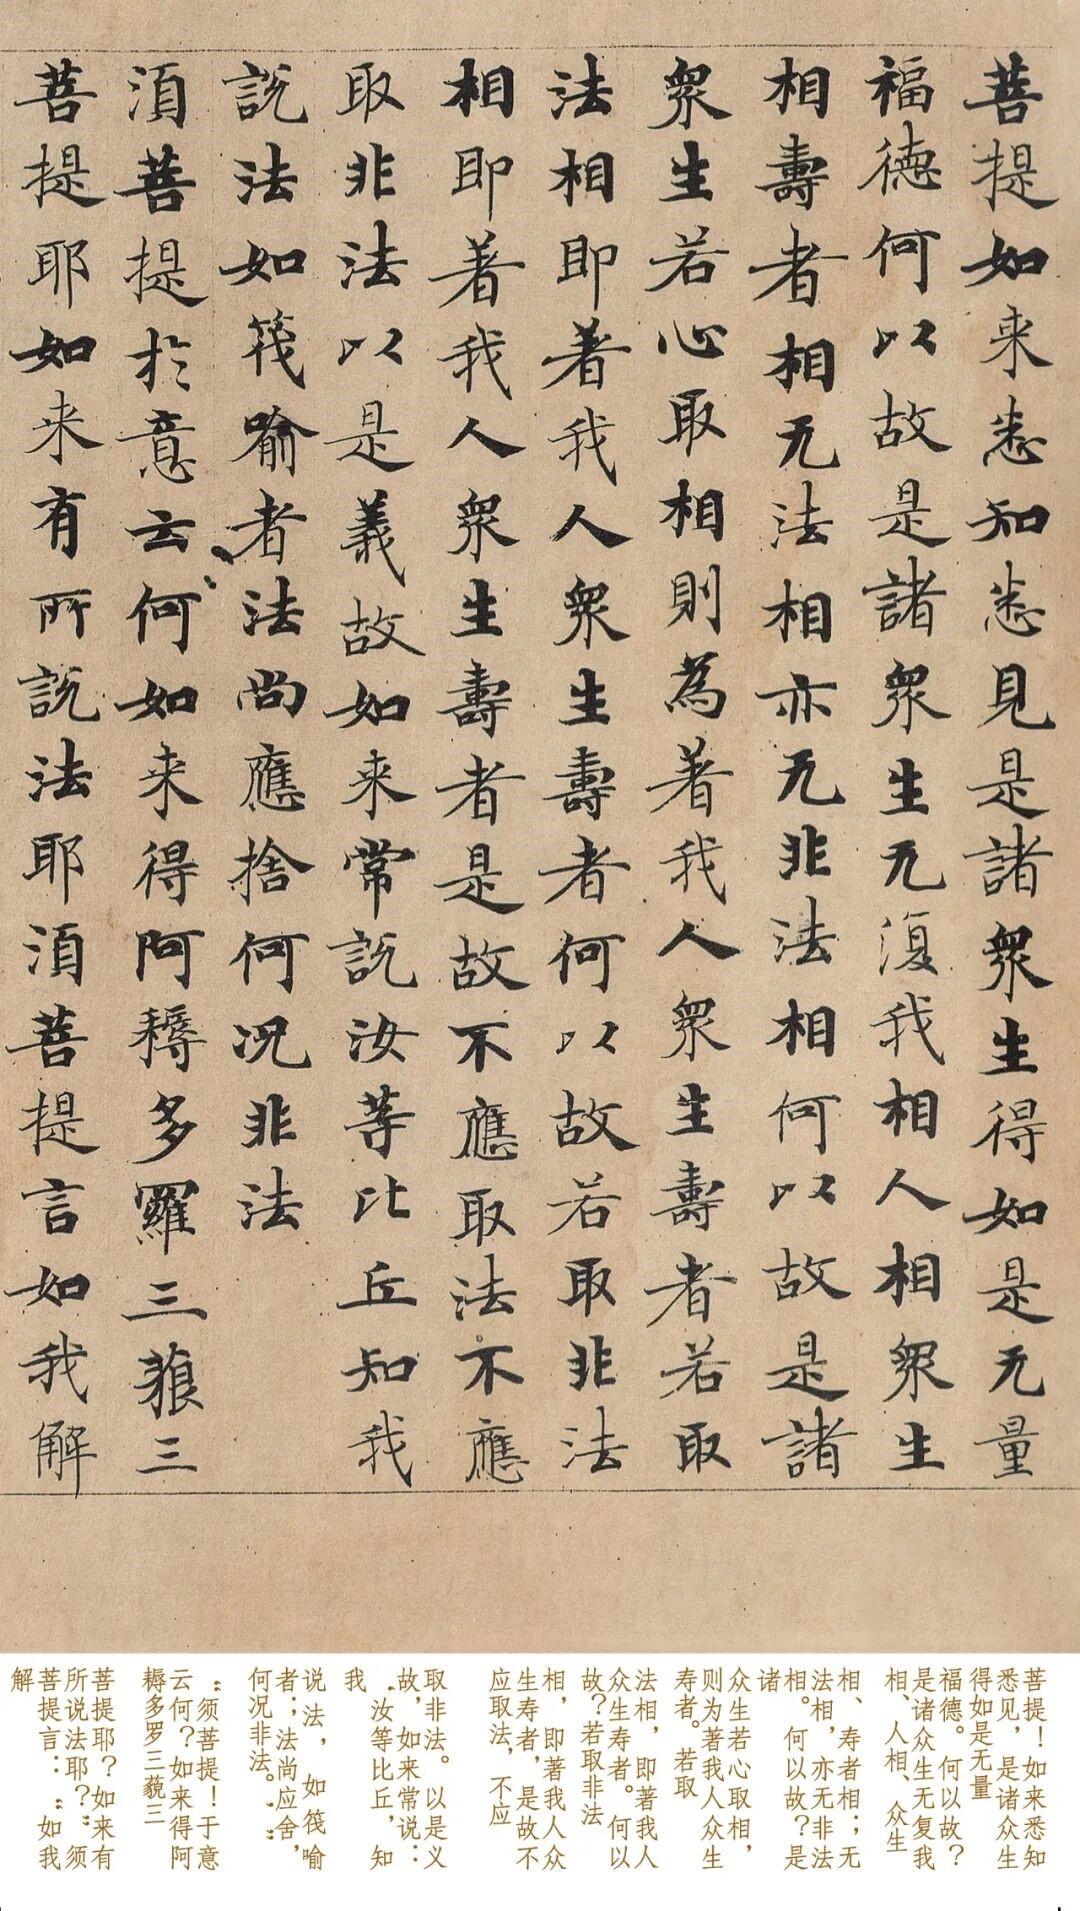 菩提如来悉知悉見是諸衆生得如是无量
福德何以故是諸衆生无復我相人相衆生
相壽者相无法相亦无非法相何以故是諸
衆生若心取相則為著我人衆生壽者若取
法相即著我人衆生壽者何以故若取非法
相即著我人衆生壽者是故不應取法不應
取非法以是義故如来常說汝等比丘知我
說法如筏喻者法尚應捨何況非法
須菩提於意云何如来得阿耨多羅三藐三
菩提耶如来有所說法耶須菩提言如我解
菩提！如来悉知
悉见，是诸众生
得如是无量
福德。何以故？
是诸众生无复我
相、人相、众生
相、寿者相；无
法相，亦无非法
相。何以故？是
诸
众生若心取相，
则为著我人众生
寿者。若取
法相，即著我人
众生寿者。何以
故？若取非法
相，即著我人众
生寿者，是故不
应取法，不应
取非法。以是义
故，如来常说：
“汝等比丘，知
我
说法，如筏喻
者；法尚应舍，
何况非法。”
“须菩提！于意
云何？如来得阿
耨多罗三藐三
菩提耶？如来有
所说法耶？”须
菩提言：“如我
解